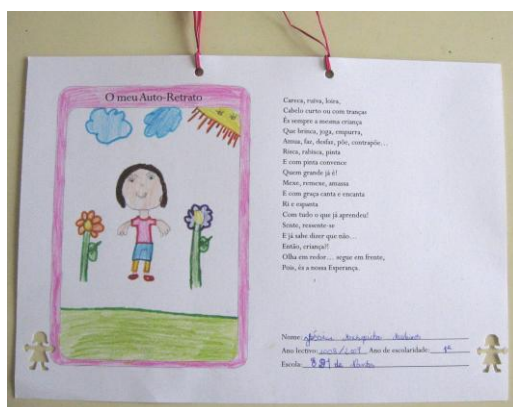 O meu Auto-Retrato
Careca, ruiva, loira,
Cabelo curto ou com tranças
És sempre a mesma criança
Que brinca, joga, empurra,
Amua, faz, desfaz, põe, contrapõe…
Risca, rabisca, pinta
E com pinta convence
Quem grande já é!
Mexe, remexe, amassa
E com graça canta e encanta
Ri e espanta
Com tudo o que já aprendeu!
Sente, ressente-se
E já sabe dizer que não…
Então, criança?!
Olha em redor… segue em frente,
Pois, és a nossa Esperança.
Nome:
Ano lectivo: 2008/2009 Ano de escolaridade: 1º
Escola: de